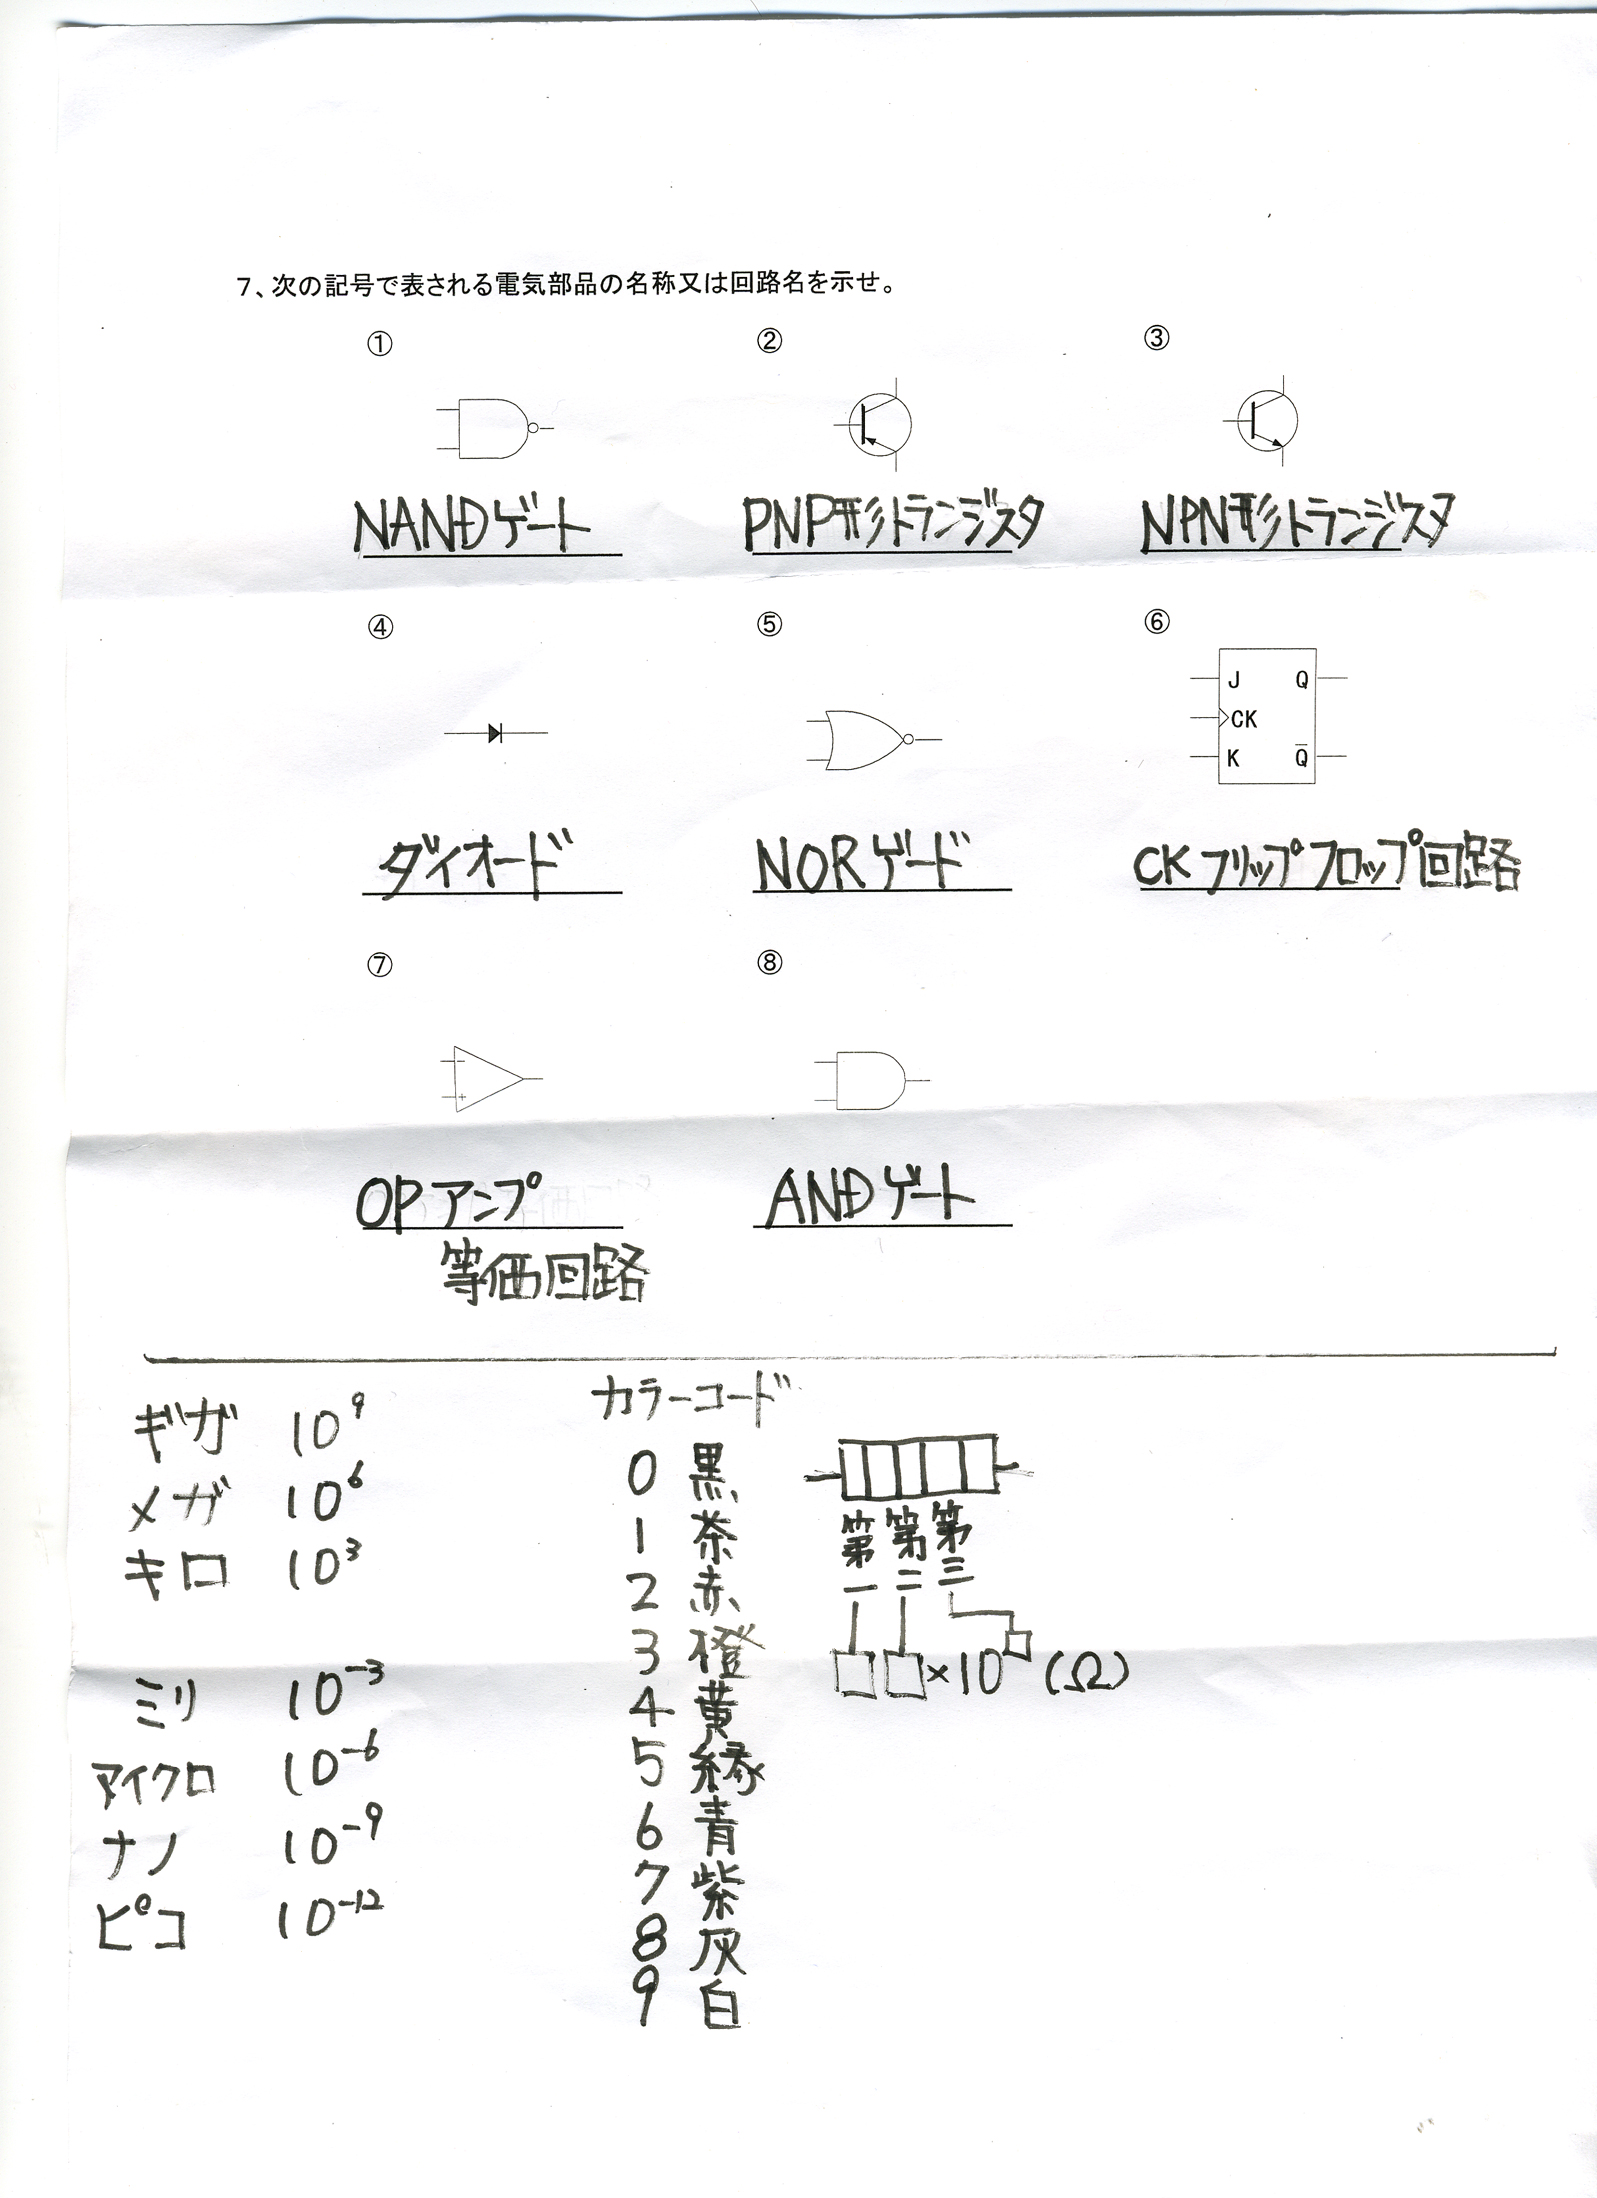 7、次の記号で表される電気部品の名称又は回路名を示せ。
① ② ③
NANDゲート PNP形トランジスタ NPN形トランジスタ
④ ⑤ ⑥
J Q
CK
K Q̅
ダイオード NORゲード CKフリップフロップ回路
⑦ ⑧
−
+
OPアンプ ANDゲート
等価回路
カラーコード
ギガ 10⁹
メガ 10⁶
キロ 10³
ミリ 10⁻³
アイクロ 10⁻⁶
ナノ 10⁻⁹
ピコ 10⁻¹²
0 黒
1 茶
2 赤
3 橙
4 黄
5 縁
6 青
7 紫
8 灰
9 白
第一 第二 第三
□□×10□ (Ω)